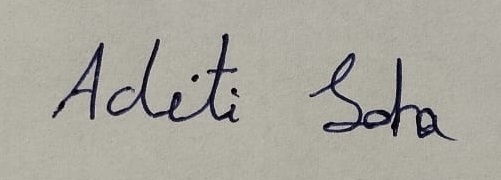 Aditi Saha